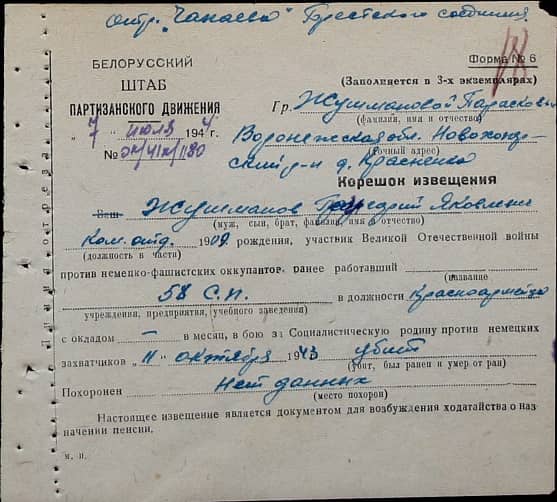 отр. "Чапаева" Брестского соединен.
БЕЛОРУССКИЙ
ШТАБ
ПАРТИЗАНСКОГО ДВИЖЕНИЯ
"7" июля 1944 г.
№
Форма № 6
(Заполняется в 3-х экземплярах)
Гр. Жушмановой
(фамилия, имя и отчество)
Воронежская обл. Новохопер-
(точный адрес)
ский р-н д. Красненко
Корешок извещения
Ваш Жушманов Яковлевич
(муж, сын, брат, фамилия, имя и отчество)
Ком. отд. 1909 рождения, участник Великой Отечественной войны
(должность в части)
против немецко-фашистских оккупантов. ранее работавший
(название
58 С.П. в должности Красноармейца
учреждения, предприятия, учебного заведения)
с окладом — в месяц, в бою за Социалистическую родину против немецких
захватчиков "11" октября 1943 убит
(убит, был ранен и умер от ран)
Похоронен Нет данных
(место похорон)
Настоящее извещение является документом для возбуждения ходатайства о наз-
начении пенсии.
м. п.